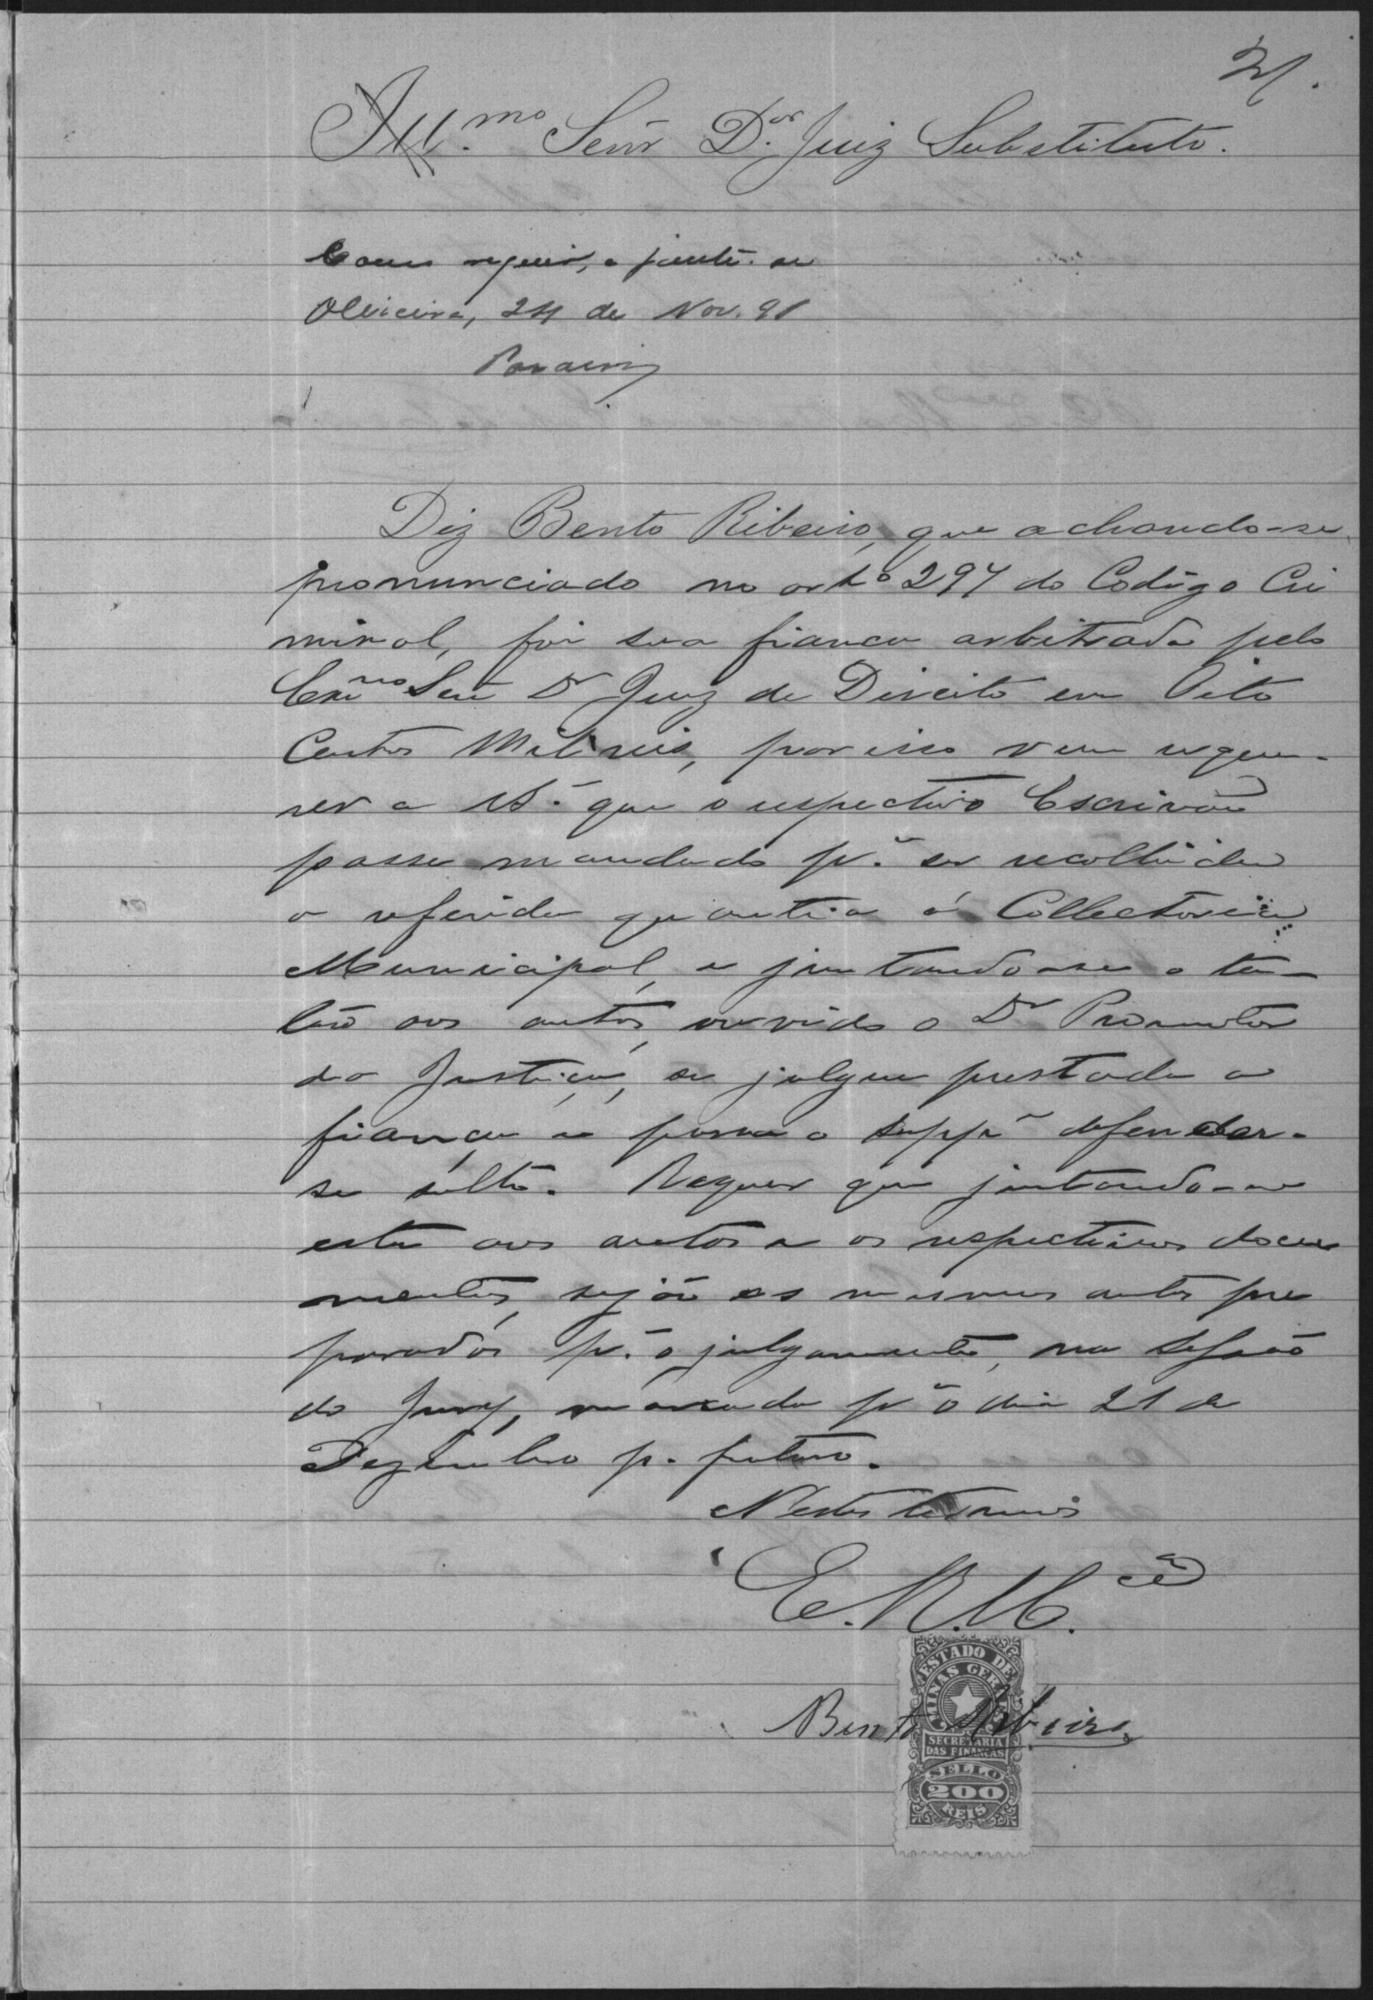 21.
Ill.mo Senr D.or Juiz Substituto.
Como requer, e junte-se
Oliveira, 24 de Nov. 98
Diz Bento Ribeiro, que achando-se
pronunciado no arto 297 do Codigo Cri
minal, foi sua fiança arbitrada pelo
Exmo Senr Dr Juiz de Direito em Oito
Centos Mil reis, por isso vem reque-
rer a VSa que o respectivo Escrivão
passe mandado pa ser recolhida
a referida quantia á Collectoria
Municipal, e juntando-se o ta-
lão aos autos, ouvido o Dr Promotor
da Justiça, se julgue prestada a
fiança e possa o suppe defender-
se solto. Requer que juntando-se
esta aos autos e os respectivos docu
mentos, sejão os mesmos autos pre
parados pa o julgamento, na sessão
do Jury, marcada pa o dia 21 de
Dezembro p. futuro.
Nestes termos
E. R. M.ce
Bento Ribeiro
ESTADO DE
MINAS GERAES
SECRETARIA
DAS FINANÇAS
SELLO
200
REIS